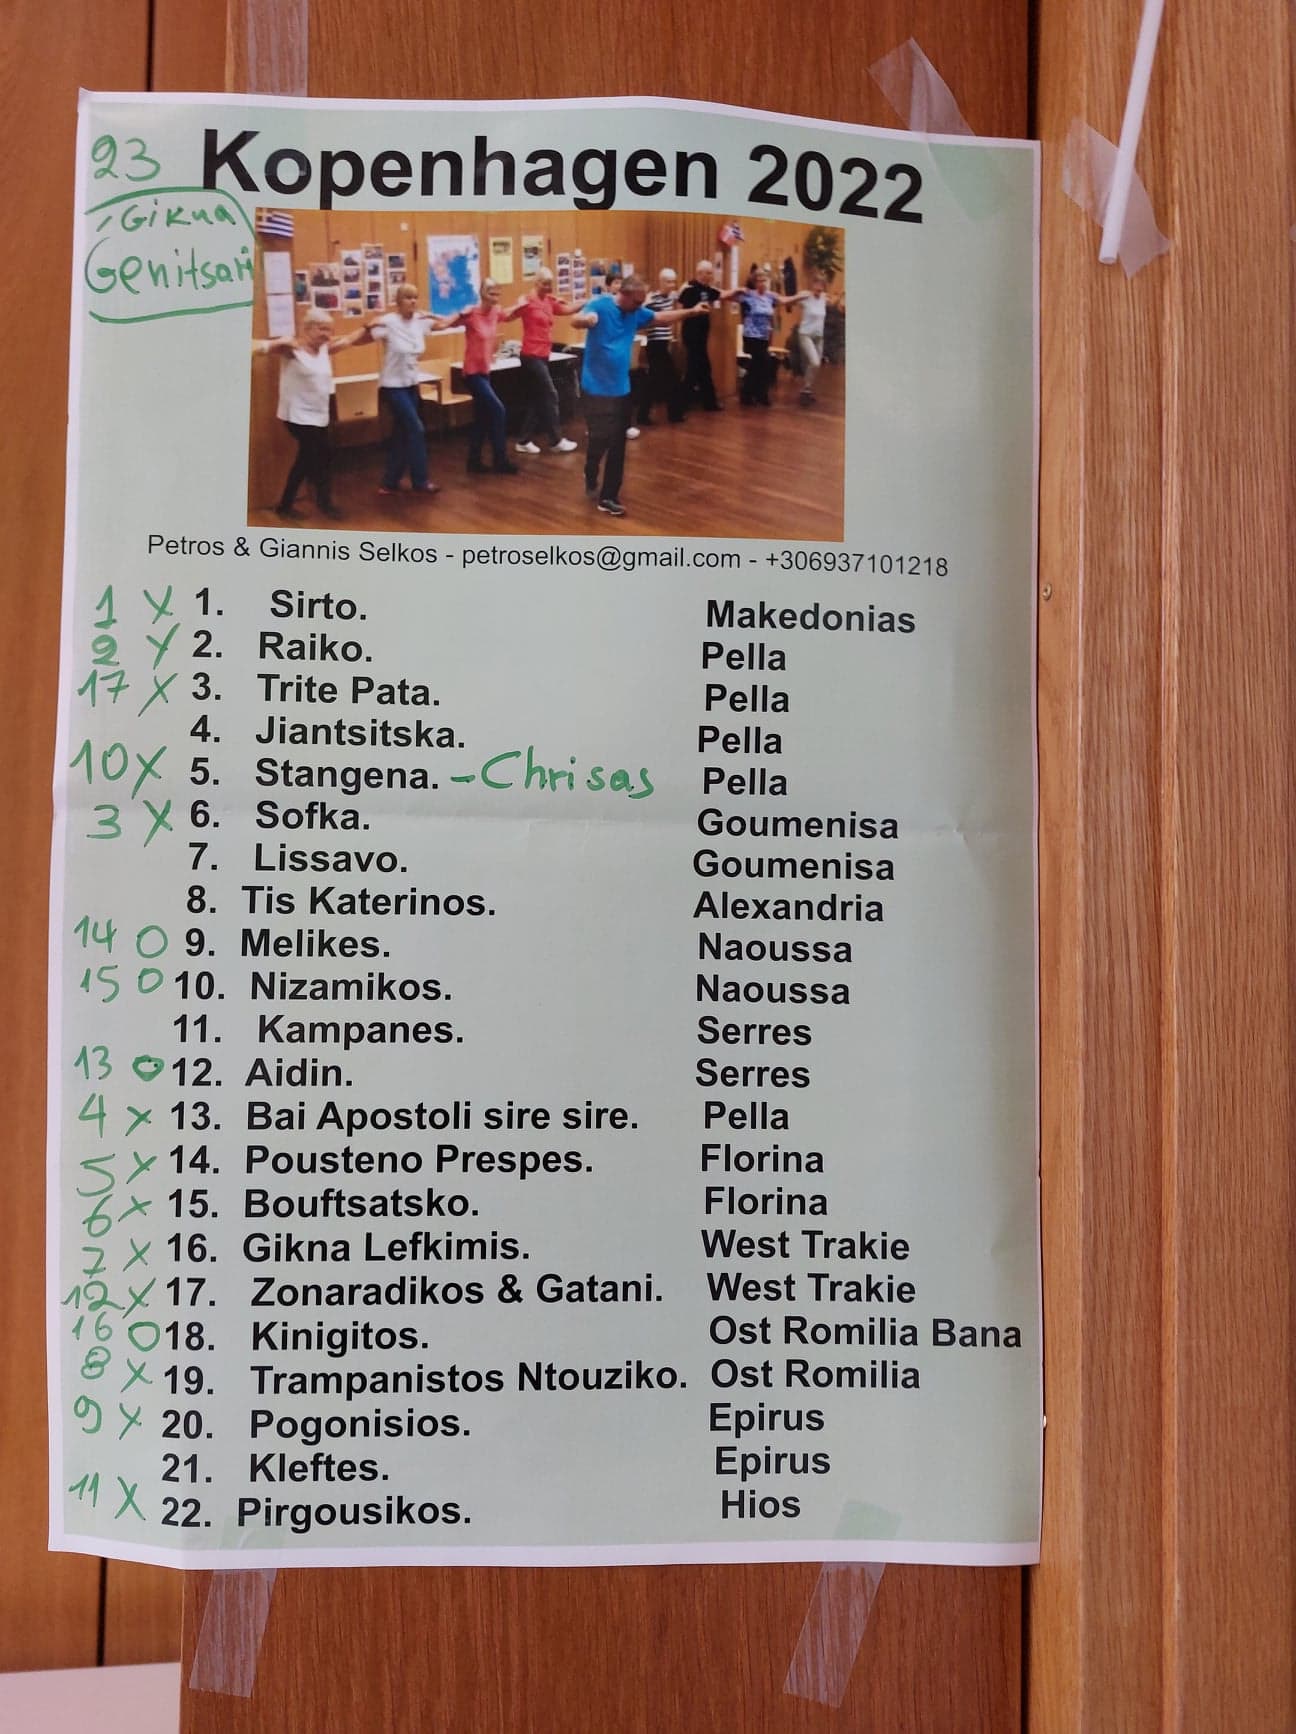 23 Kopenhagen 2022
Gikna
Genitsari
Petros & Giannis Selkos - petroselkos@gmail.com - +306937101218
1 X 1. Sirto. Makedonias
2 X 2. Raiko. Pella
17 X 3. Trite Pata. Pella
4. Jiantsitska. Pella
10 X 5. Stangena. - Chrisas Pella
3 X 6. Sofka. Goumenisa
7. Lissavo. Goumenisa
8. Tis Katerinos. Alexandria
14 O 9. Melikes. Naoussa
15 O 10. Nizamikos. Naoussa
11. Kampanes. Serres
13 O 12. Aidin. Serres
4 X 13. Bai Apostoli sire sire. Pella
5 X 14. Pousteno Prespes. Florina
6 X 15. Bouftsatsko. Florina
7 X 16. Gikna Lefkimis. West Trakie
12 X 17. Zonaradikos & Gatani. West Trakie
16 O 18. Kinigitos. Ost Romilia Bana
8 X 19. Trampanistos Ntouziko. Ost Romilia
9 X 20. Pogonisios. Epirus
21. Kleftes. Epirus
11 X 22. Pirgousikos. Hios